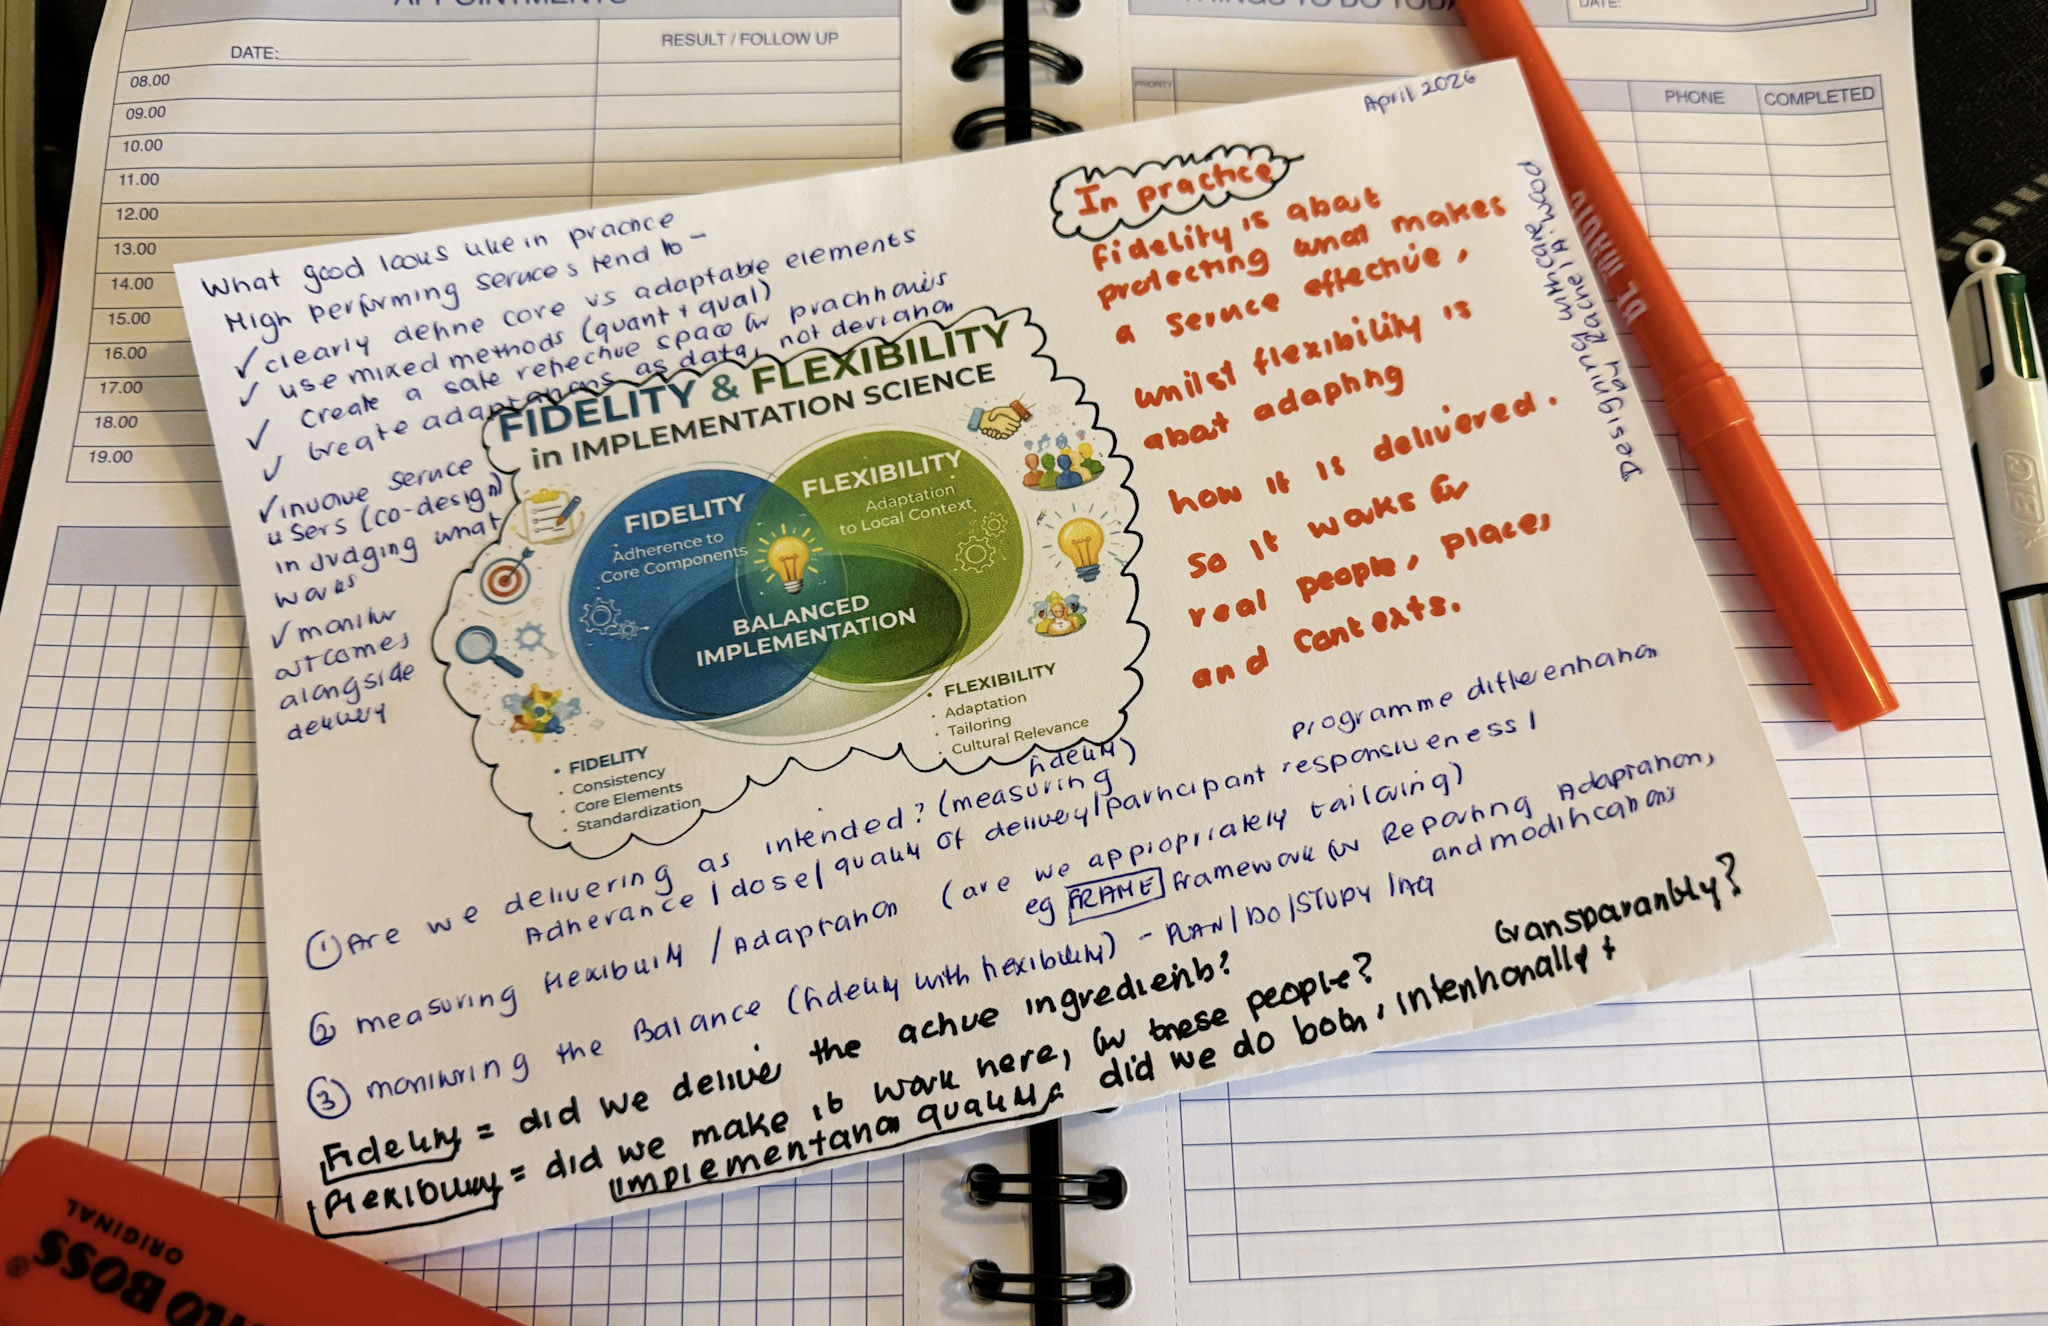 APPOINTMENTS
DATE:
RESULT / FOLLOW UP
08.00
09.00
10.00
11.00
12.00
13.00
14.00
15.00
16.00
17.00
18.00
19.00
THINGS TO DO TODAY
DATE:
PRIORITY
PHONE
COMPLETED
April 2026
What good looks like in practice
High performing services tend to -
✓ clearly define core vs adaptable elements
✓ use mixed methods (quant + qual)
✓ Create a safe reflective space for practitioners
✓ treat adaptations as data, not deviation
✓ involve service
users (co-design)
in judging what
works
✓ monitor
outcomes
alongside
delivery
FIDELITY & FLEXIBILITY
in IMPLEMENTATION SCIENCE
FIDELITY
Adherence to
Core Components
FLEXIBILITY
Adaptation
to Local Context
BALANCED
IMPLEMENTATION
• FIDELITY
• Consistency
• Core Elements
• Standardization
• FLEXIBILITY
• Adaptation
• Tailoring
• Cultural Relevance
In practice
Fidelity is about
protecting what makes
a service effective,
whilst flexibility is
about adapting
how it is delivered.
So it works for
real people, places
and contexts.
Designing with care
by Rachel A. Wood
① Are we delivering as intended? (measuring
fidelity)
Adherance / dose / quality of delivery / participant responsiveness /
programme differentiation
② measuring flexibility / Adaptation (are we appropriately tailoring)
eg FRAME framework for Reporting Adaptation,
and modifications
③ monitoring the Balance (fidelity with flexibility) - PLAN / DO / STUDY / Act
Fidelity = did we deliver the active ingredients?
Flexibility = did we make it work here, for these people?
Implementation quality = did we do both, intentionally +
transparantly?
BIC
STABILO BOSS
ORIGINAL